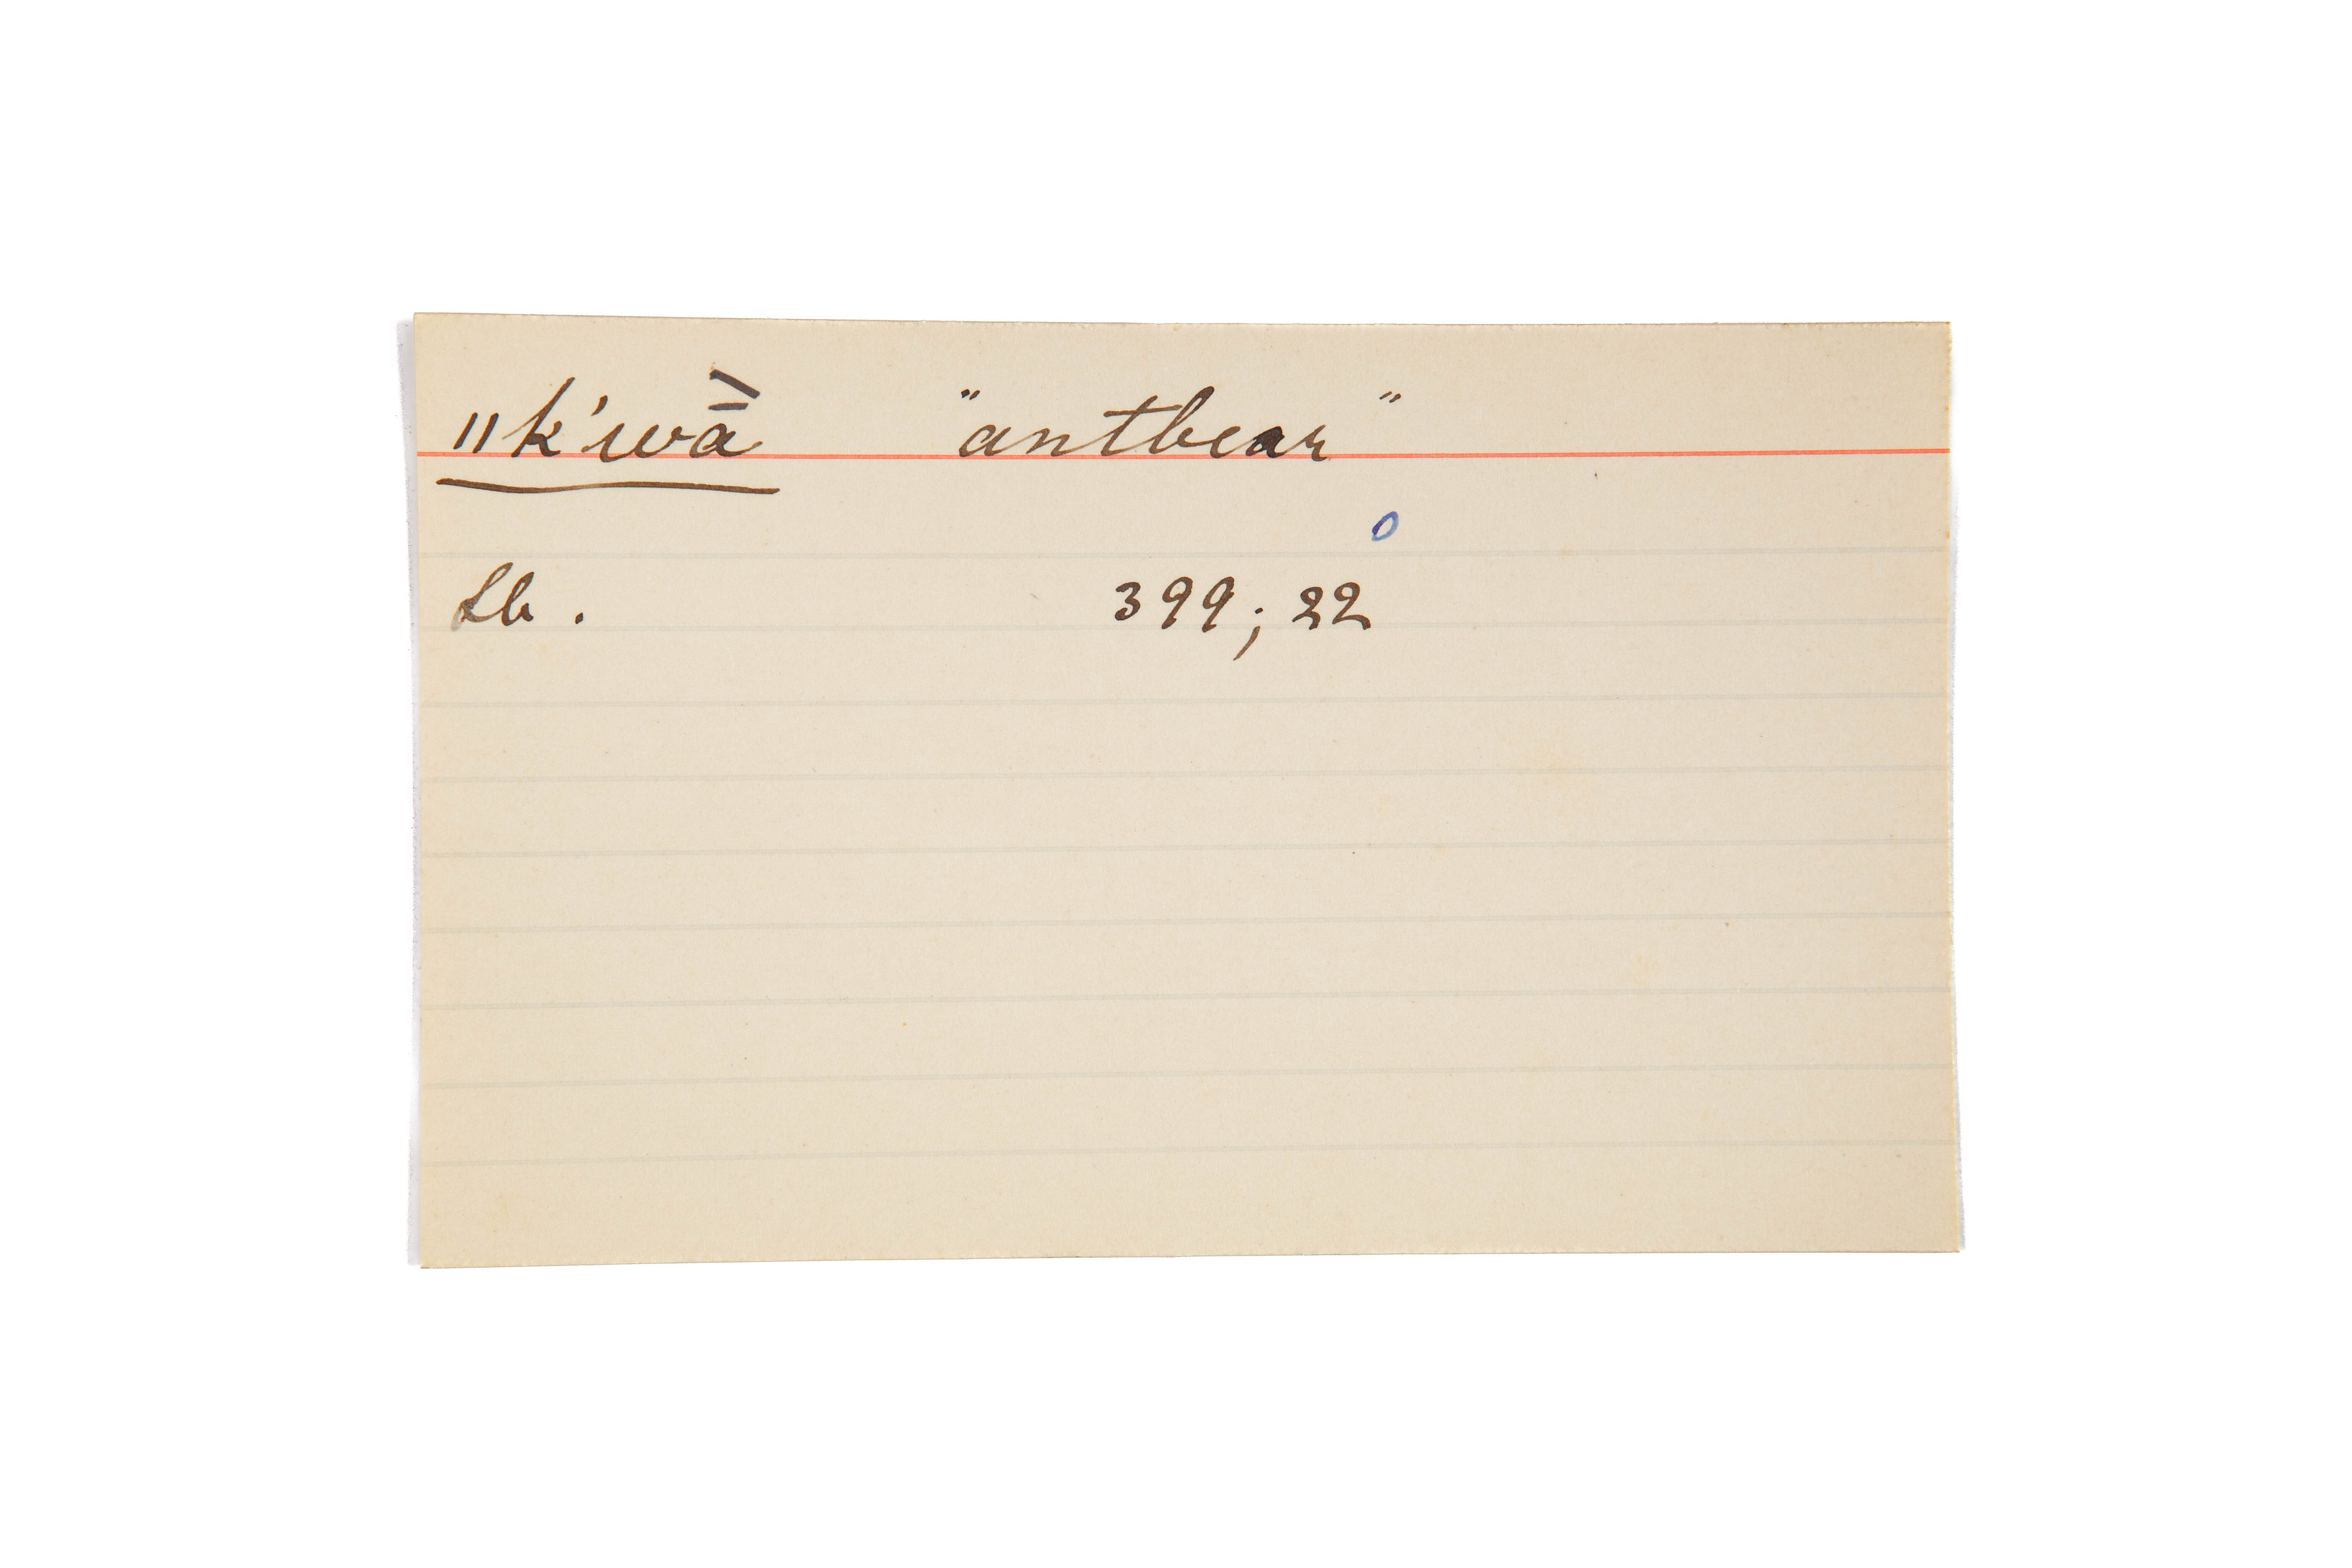 ǁk'wā̀ "antbear"
o
Lb. 399; 22